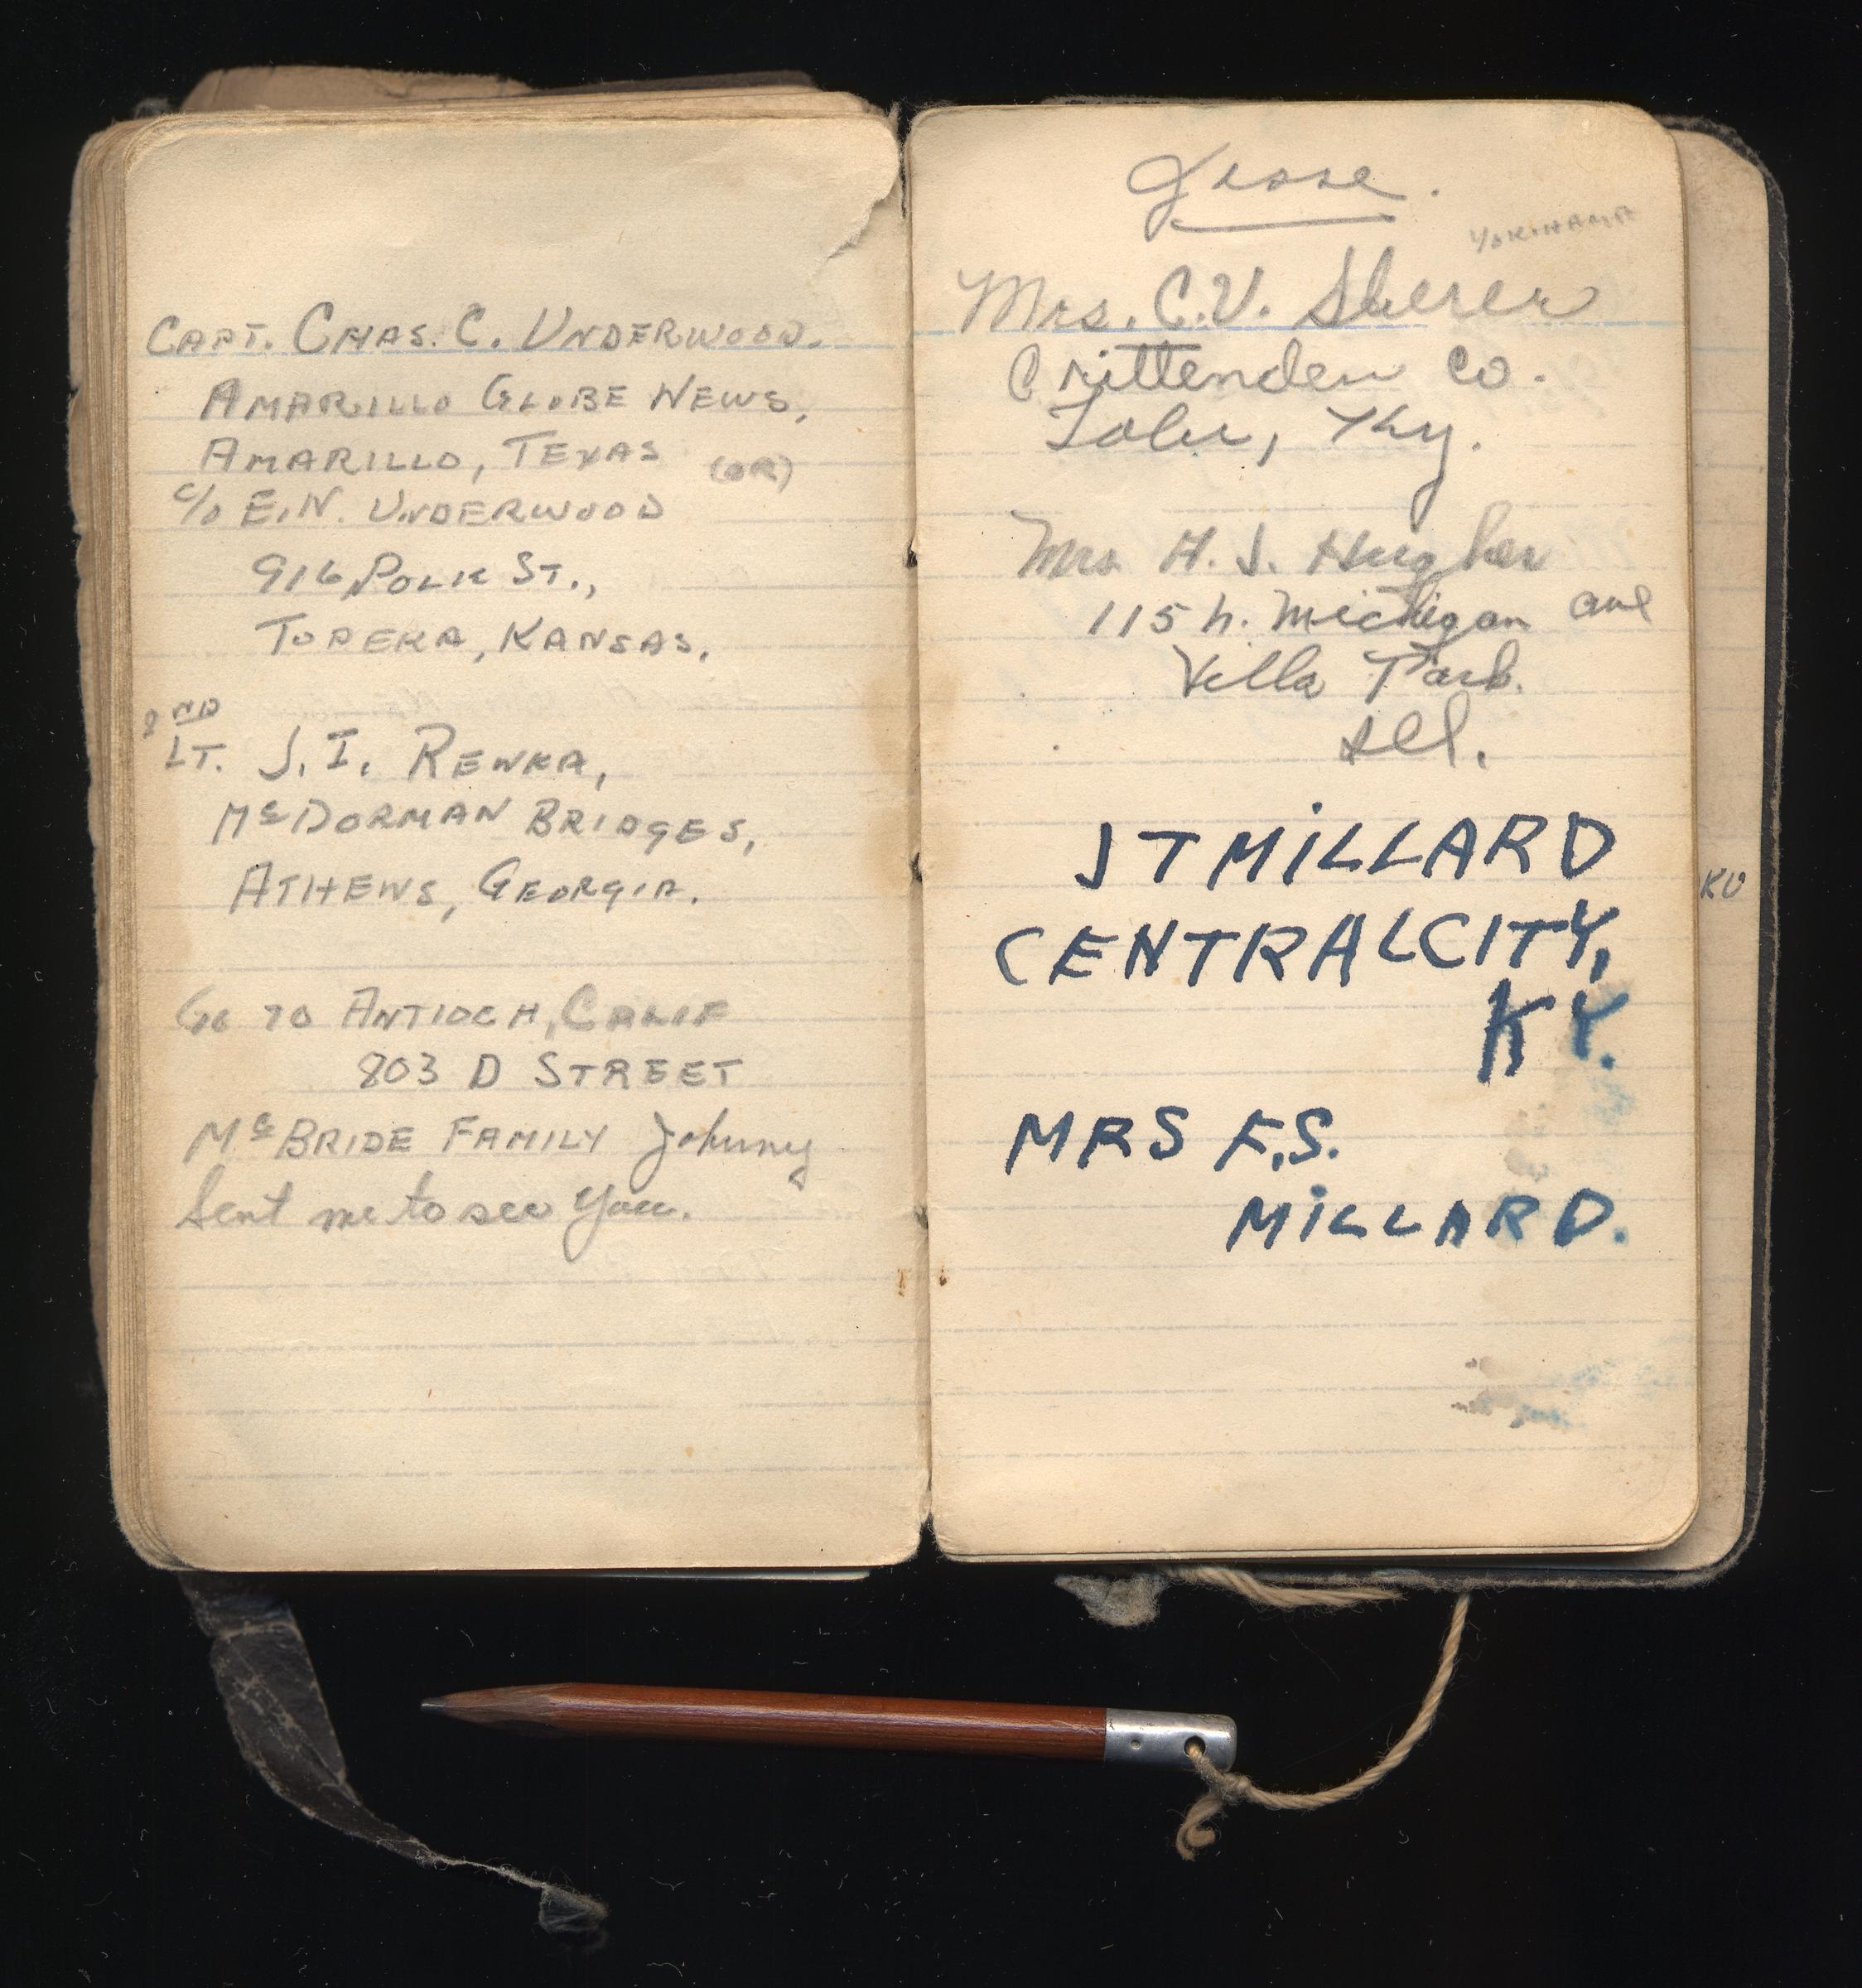 CAPT. CHAS. C. UNDERWOOD.
AMARILLO GLOBE NEWS,
AMARILLO, TEXAS (OR)
c/o E.N. UNDERWOOD
916 POLK ST.,
TOPEKA, KANSAS.
2ND
LT. J. I. RENKA,
McDORMAN BRIDGES,
ATHENS, GEORGIA.
GO TO ANTIOCH, CALIF
803 D STREET
McBRIDE FAMILY Johnny
Sent me to see you.
Jesse.
YOKIHAMA
Mrs. C.V. Sherer
Crittenden Co.
Tolu, Ky.
Mrs. H. J. Hughes
115 N. Michigan ave
Villa Park.
Ill.
J T MILLARD
CENTRALCITY,
KY.
MRS F.S.
MILLARD.
KU